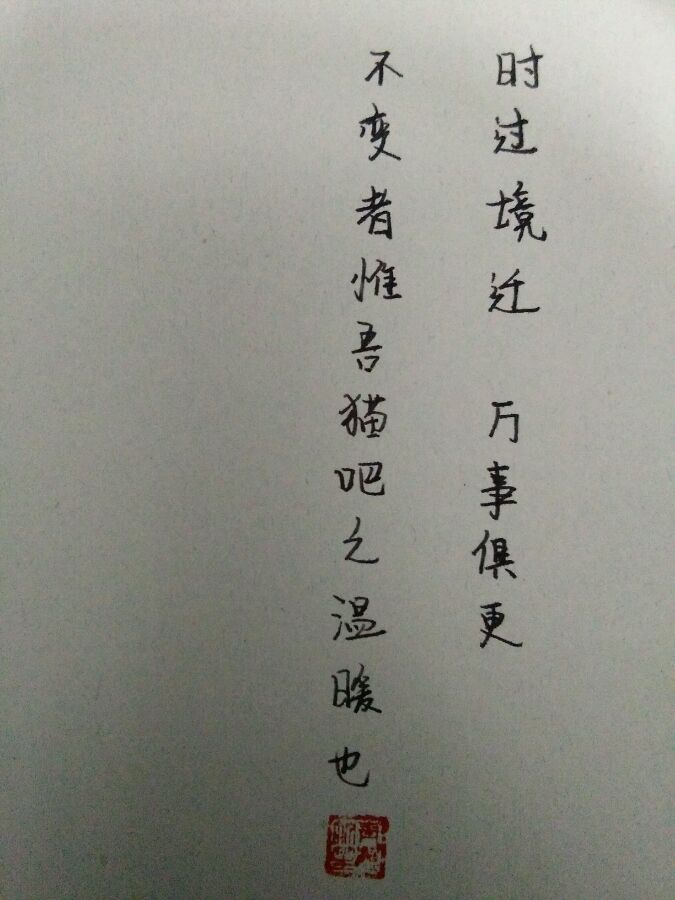 时过境迁 万事俱更
不变者惟吾猫吧之温暖也